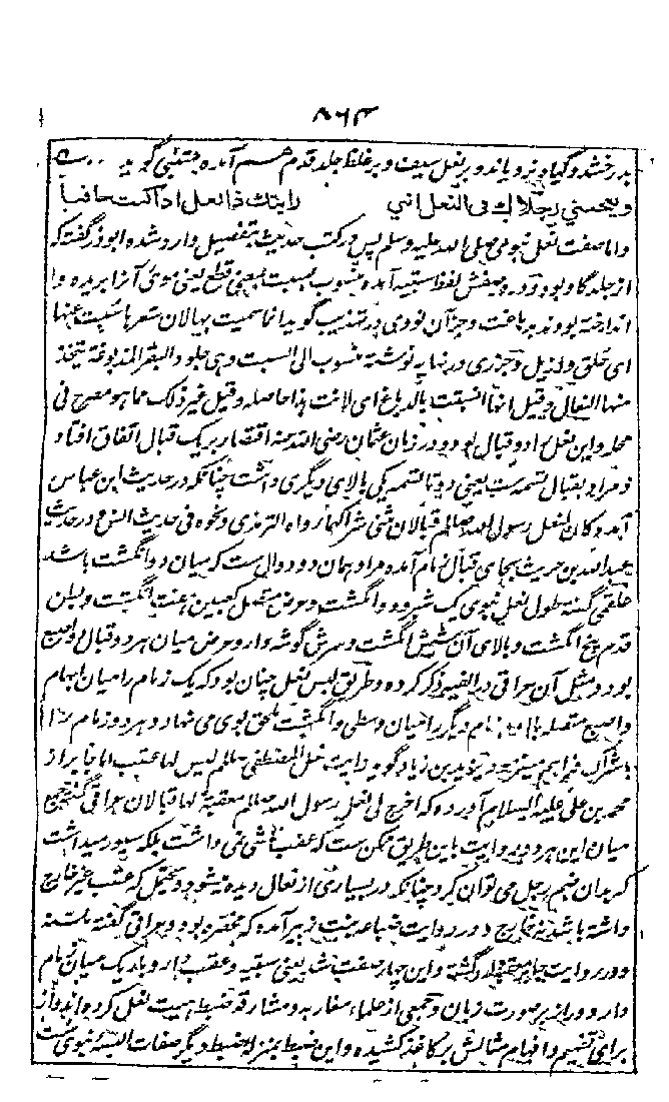 ۸۶۳
بدرخشد و گیاه برویاند و بر نعل سیف و بر غلظ جلد قدم هم آمده متنبی گوید
ویعجبنی رجلاك فی النعل اننی رایتك ذا نعل اذا کنت حافیا
واما صفت نعل نبوی صلی الله علیه وسلم پس در کتب حدیث بتفصیل وارد شده ابوذر گفته که
از جلد گاو بود و در وصفش لفظ سبتیه آمده منسوب بسبت بمعنی قطع یعنی موی آنرا بریده و
انداخته بودند بدباغت و جز آن نووی در تهذیب گوید انما سمیت بها لان شعرها سبت عنها
ای حلق و ازیل و جزری در نهایه نوشته منسوب الی السبت وهی جلود البقر المدبوغة یتخذ
منها النعال وقیل انها انسبتت بالدباغ ای لانت هذا حاصله وقیل غیر ذلك مما هو مصرح فی
محله و این نعل را دو قبال بود و در زمان عثمان رضی الله عنه اقتصار بر یک قبال اتفاق افتاد
و مراد بقبال تسمه است یعنی دو تا تسمه یکی بالای دیگری داشت چنانکه در حدیث ابن عباس
آمده کان لنعل رسول الله صلعم قبالان مثنی شراکهما رواه الترمذی ونحوه فی حدیث انس و در حدیث
عبدالله بن حریث بجای قبال زمام آمده مراد همان دو دوال ست که میان دو انگشت باشد
علقمی گفته طول نعل نبوی یک شبر و دو انگشت و عرض متصل کعبین هفت انگشت و بطن
قدم پنج انگشت و بالای آن شش انگشت و سرش گوشه دار و عرض میان هر دو قبال دو اصبع
بود و مثل آن عراقی در الفیه ذکر کرده و طریق لبس نعل چنان بود که یک زمام را میان ابهام
و اصبع متصله با زمام دیگر را میان وسطی و انگشت ملحق بوی می نهاد و هر دو زمام را
باشراک فراهم می یزید بن زیاد گوید رایت نعل المصطفی صلعم لیس لها عقب اما جابر از
محمد بن علی علیه السلام آورده که اخرج لی نعل رسول الله صلعم معقبة لها قبالان عراقی گفته جمع
میان این هر دو روایت باین طریق ممکن ست که عقب ناشی نمی داشت بلکه سیور میداشت
که بدان ضم رجل می توان کرد چنانکه در بسیاری از نعال دیده میشود و محتمل که عقب غیر خارج
داشته باشد نه خارج و در روایت ضباعه بنت زبیر آمده که مخصره بود و عراقی گفته ملسنه
و در روایت جابر معقبه گشته و این چهار صفت شد یعنی سبتیه و عقب دار و باریک میان و زمام
دار و دراز بر صورت زبان و جمعی از علماء مغاربه و مشارقه ضبط هیئت نعل کرده و اندازه
برای تفهیم و افهام مثالش بر کاغذ کشیده و این ضبط بمنزله ضبط دیگر صفات البسه نبوی ست